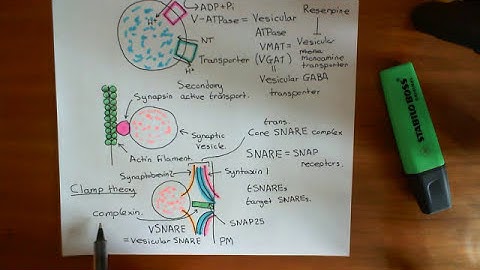 →ADP+Pi
Reserpine
V-ATPase = Vesicular
ATPase
H+
NT
VMAT = Vesicular
(VGAT)
Monoamine
Transporter
transporter
H+
Vesicular GABA
transporter
Secondary
active transport.
Synapsin
Synaptic
vesicle.
Actin filament.
trans.
Core SNARE complex
SNARE = SNAP
receptors.
Synaptobrevin2
Syntaxin 1
Clamp theory
tSNAREs
target SNAREs.
complexin.
SNAP25
vSNARE
= vesicular SNARE
PM
STABILO BOSS